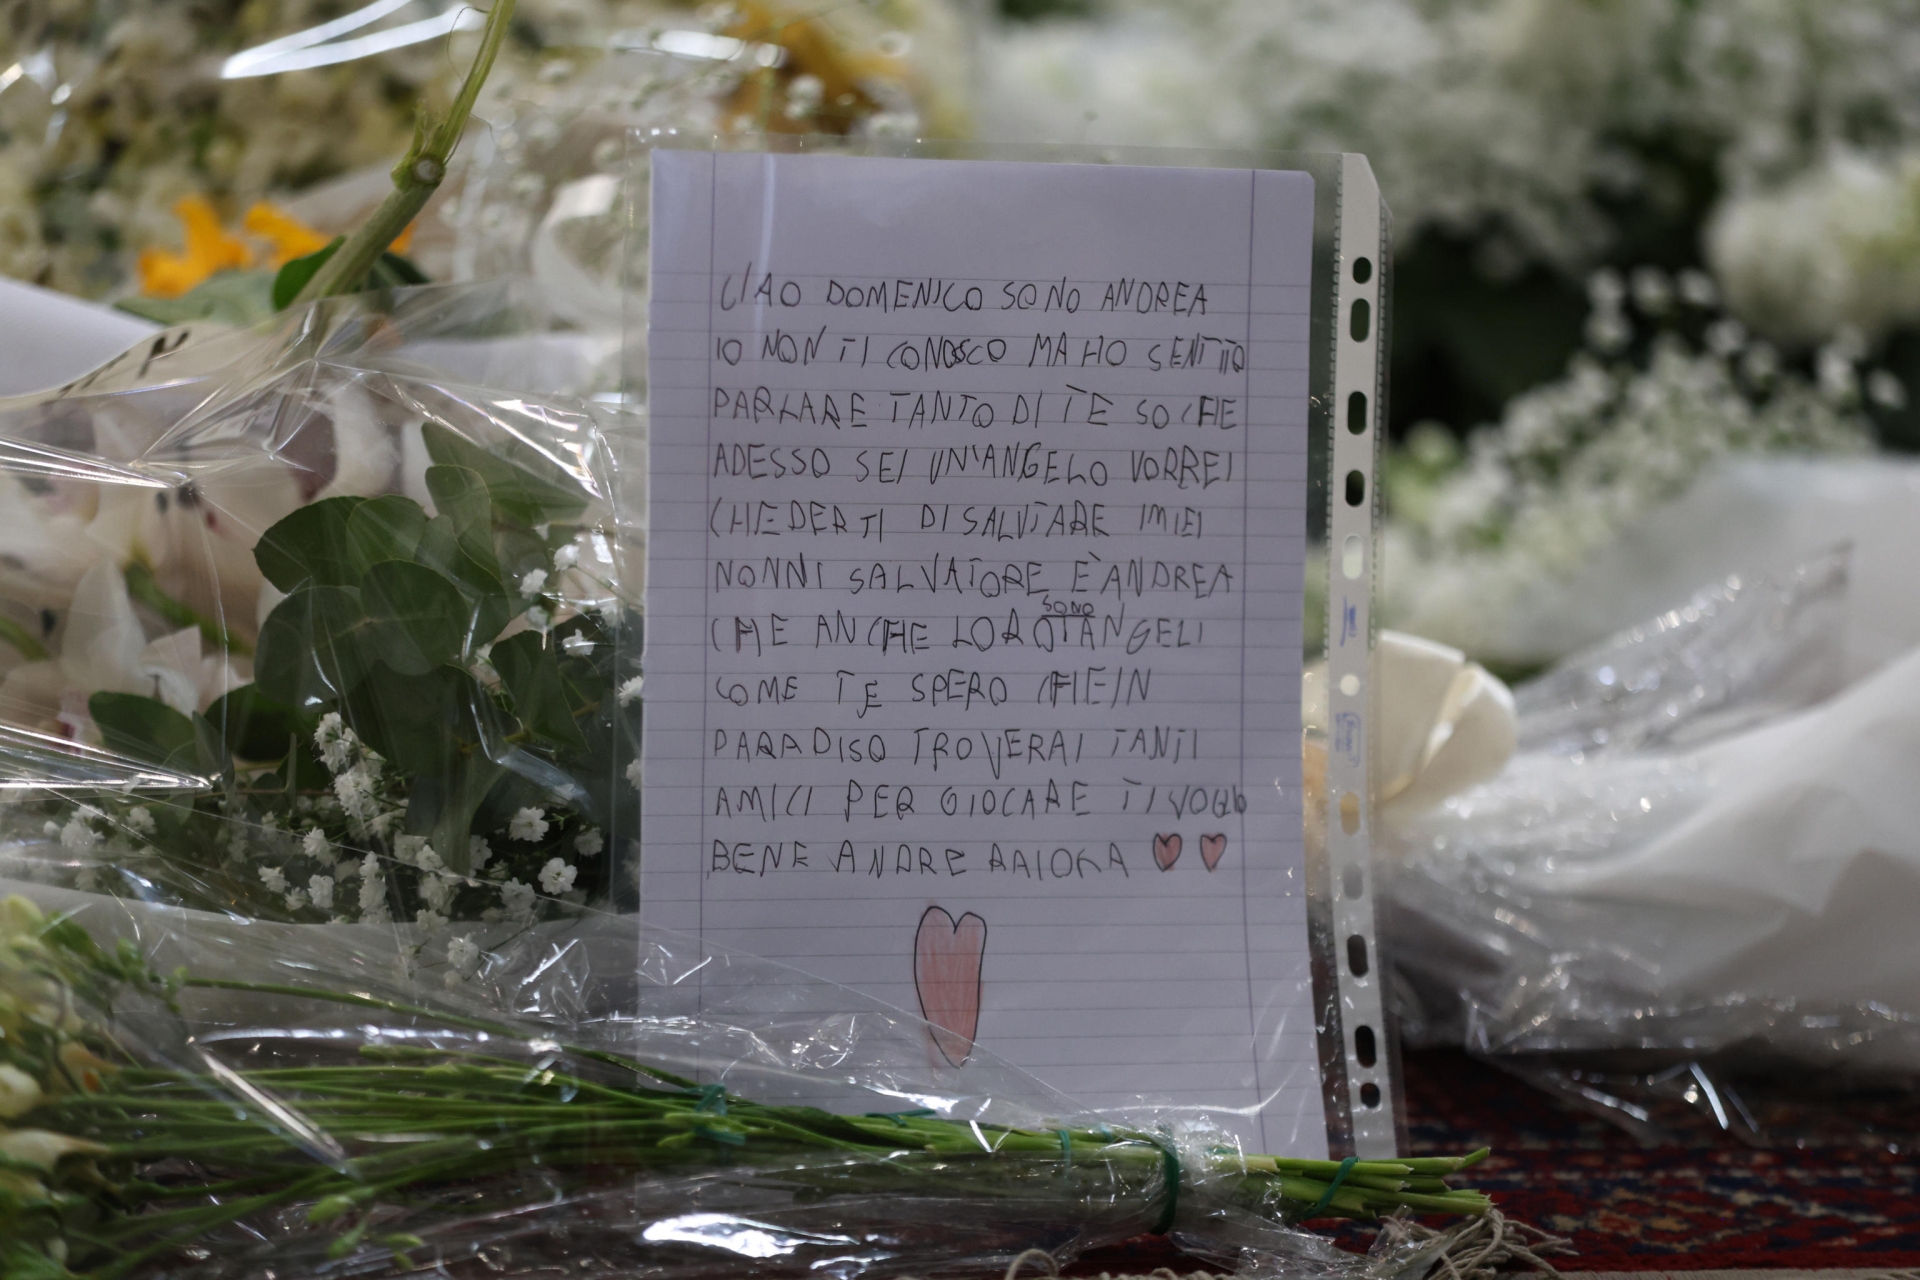 CIAO DOMENICO SONO ANDREA
IO NON TI CONOSCO MA HO SENTITO
PARLARE TANTO DI TE SO CHE
ADESSO SEI UN'ANGELO VORREI
CHIEDERTI DI SALUTARE I MIEI
NONNI SALVATORE È ANDREA
CHE ANCHE LORO SONO ANGELI
COME TE SPERO CHE IN
PARADISO TROVERAI TANTI
AMICI PER GIOCARE TI VOGLIO
BENE ANDRE